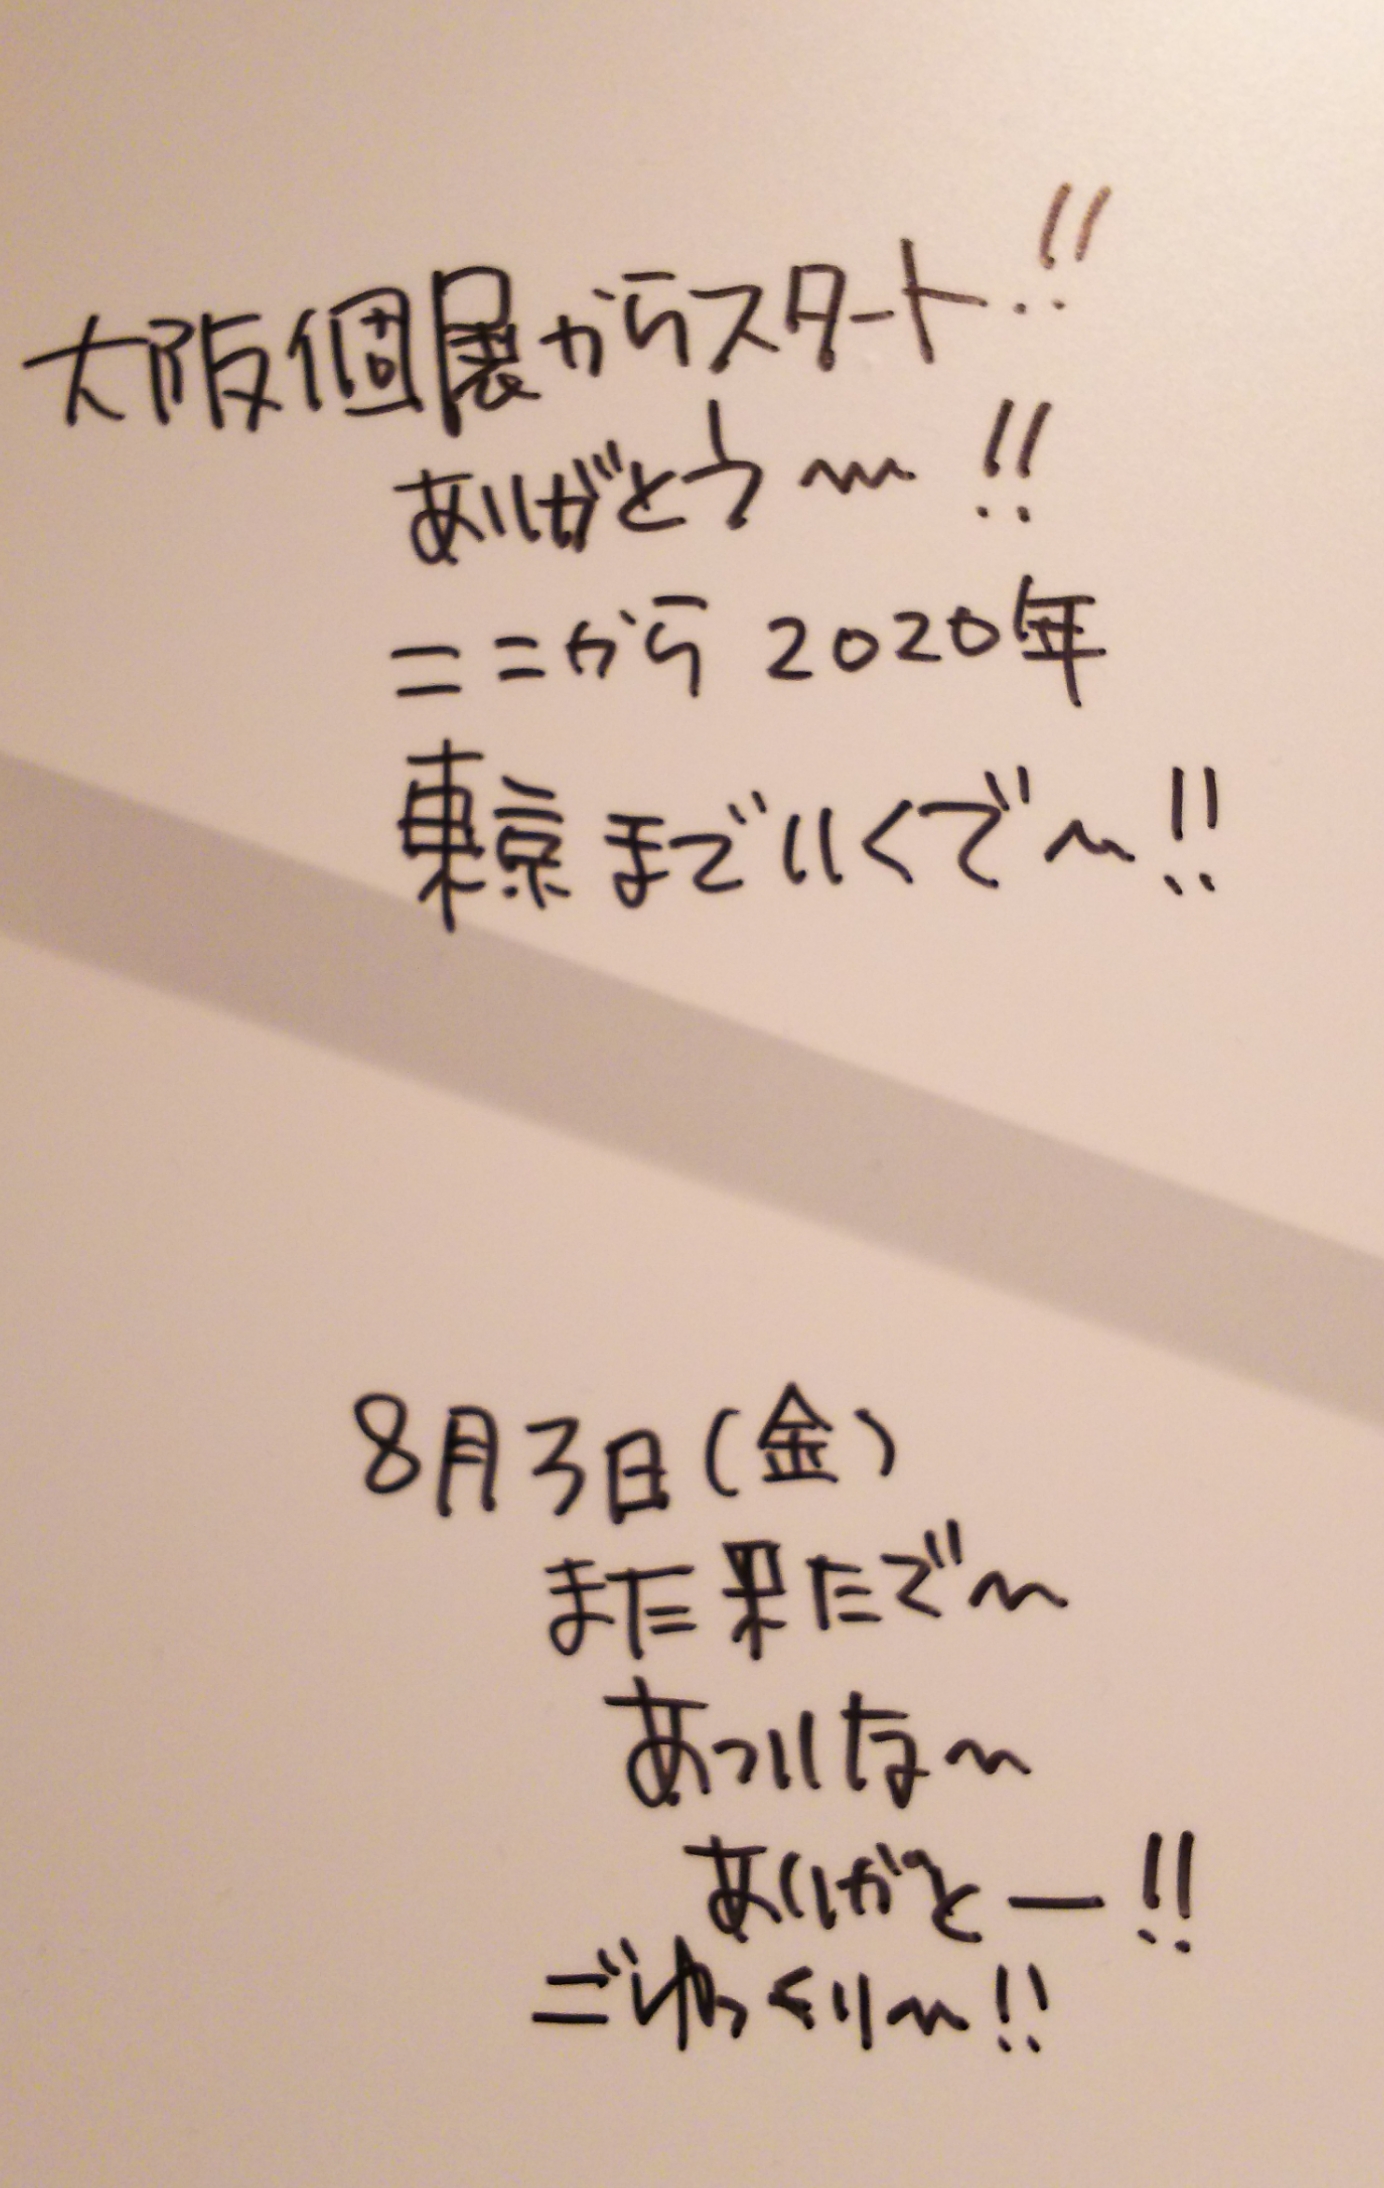 大阪個展からスタート!!
ありがとう〜!!
ここから2020年
東京までいくで〜!!
8月3日(金)
また来たで〜
あついな〜
ありがとー!!
ごゆっくり〜!!